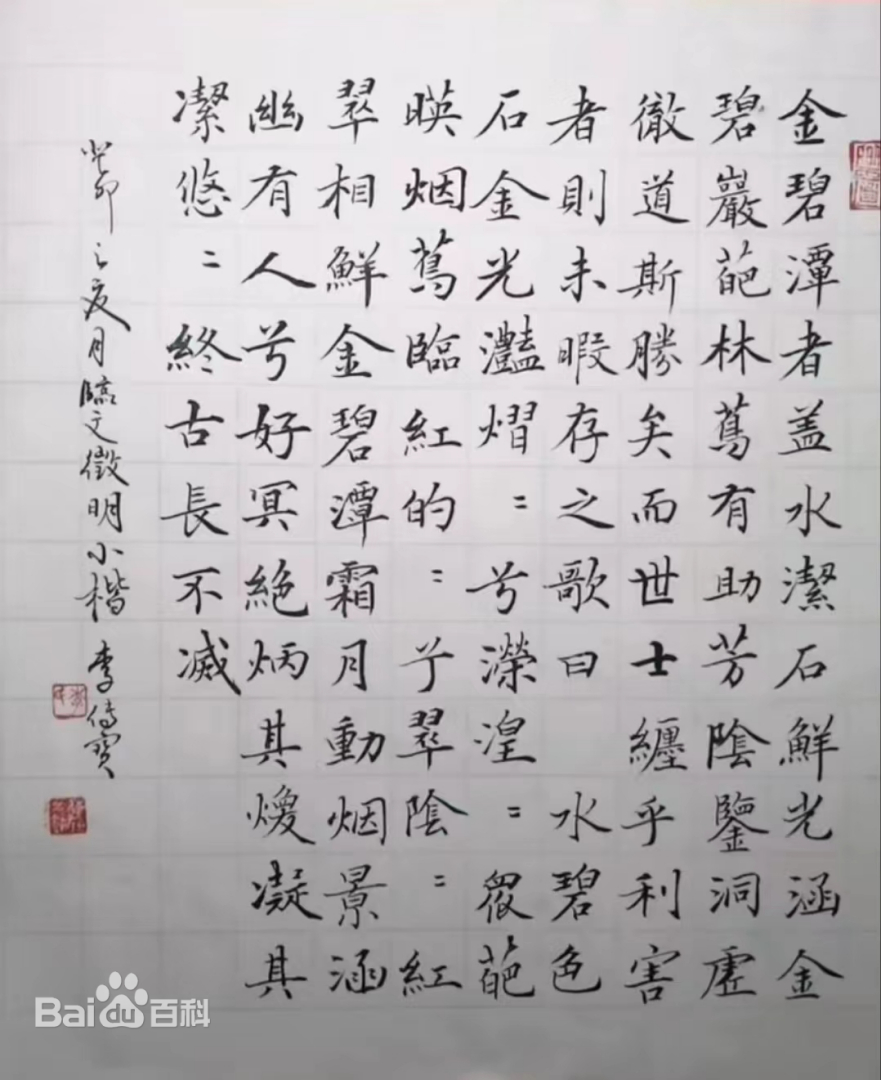 金碧潭者盖水潔石鮮光涵金
碧巖葩林蔦有助芳陰鑒洞虛
徹道斯勝矣而世士纏乎利害
者則未暇存之歌曰 水碧色
石金光灩熠〻兮濚湟〻眾葩
暎烟蔦臨紅的〻兮翠陰〻紅
翠相鮮金碧潭霜月動烟景涵
幽有人兮好冥絶炳其煥凝其
潔悠〻終古長不滅
癸卯之夜月臨文徵明小楷 李傳寶
Bai百科